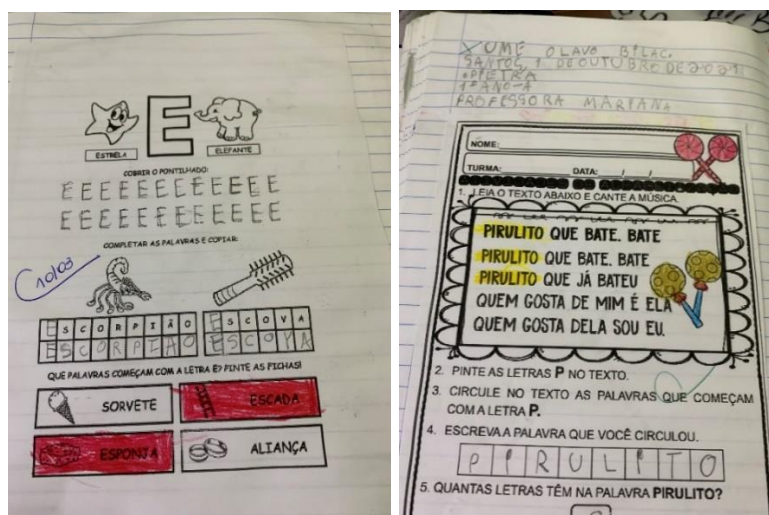 E
ESTRELA
ELEFANTE
COBRIR O PONTILHADO:
E E E E E E E E E E E E
E E E E E E E E E E E E
COMPLETAR AS PALAVRAS E COPIAR:
10/03
ESCORPIÃO
ESCORPIÃO
ESCOVA
ESCOVA
QUE PALAVRAS COMEÇAM COM A LETRA E? PINTE AS FICHAS!
SORVETE
ESCADA
ESPONJA
ALIANÇA
UME OLAVO BILAC.
SANTOS, 1 DE OUTUBRO DE 2021
PIETRA
1º ANO-A
PROFESSORA MARIANA
NOME:
TURMA: DATA: / /
1. LEIA O TEXTO ABAIXO E CANTE A MÚSICA.
PIRULITO QUE BATE. BATE
PIRULITO QUE BATE. BATE
PIRULITO QUE JÁ BATEU
QUEM GOSTA DE MIM É ELA
QUEM GOSTA DELA SOU EU.
2. PINTE AS LETRAS P NO TEXTO.
3. CIRCULE NO TEXTO AS PALAVRAS QUE COMEÇAM
COM A LETRA P.
4. ESCREVA A PALAVRA QUE VOCÊ CIRCULOU.
PIRULITO
5. QUANTAS LETRAS TÊM NA PALAVRA PIRULITO?